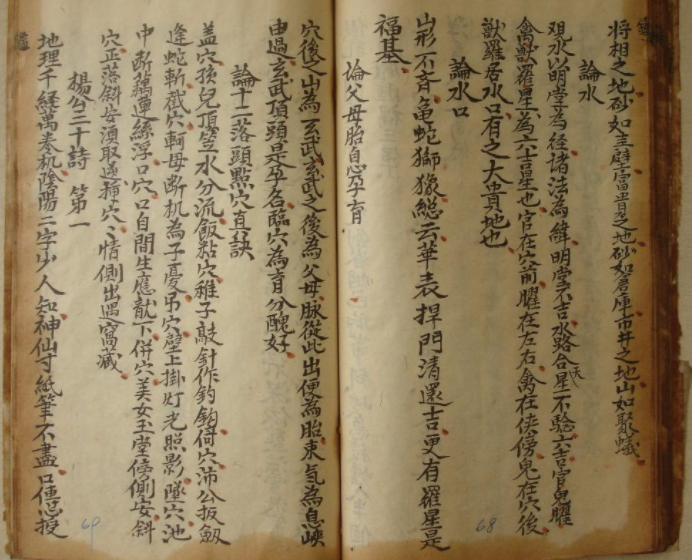 将相之地砂如圭璧富貴之地砂如倉庫市井之地山如聚蟻
論水
观水以明堂為徑諸法為緯明堂不吉水路合天星不驗六吉官鬼曜
禽獸羅星為六吉星也官在穴前曜在左右禽在侠傍鬼在穴後
獸羅居水口有之大貴地也
論水口
山形不吝龜蛇獅猴総云華表捍門清還吉更有羅星是
福基
論父母胎息孕育
穴後入山為玄武玄武之後為父母脉從此出便為胎束气為息峽
由過玄武頂頭是孕名臨穴為育分醜好
論十二落頭點穴真訣
盖穴孩兒頂笠水分流飯黏穴稚子敲針作釣鈎倚穴沛公扳劔
逢蛇斬截穴軻母断机為子憂吊穴壁上掛灯光照影墜穴池
中断藕連絲浮口穴口自間生應龍下併穴美女玉堂傍側安斜
穴正落斜安湧取遠種穴〻情側出遇窩藏
楊公三十詩 第一
地理千経萬卷机陰陽二字少人知神仙寸紙筆不盡口傳心授
68
69